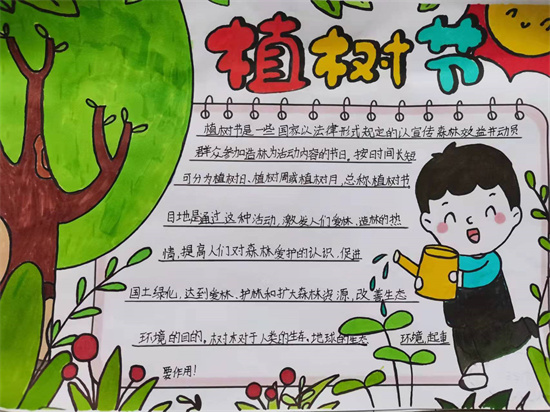 植树节
植树节是一些国家以法律形式规定的以宣传森林效益并动员
群众参加造林为活动内容的节日。按日时间长短
可分为植树日、植树周或植树月，总称植树节
目地是通过这种活动，激发人们爱林、造林的热
情，提高人们对森林爱护的认识，促进
国土绿化，达到爱林、护林和扩大森林资源，改善生态
环境的目的。树木对于人类的生存，地球的生态 环境，起重
要作用！